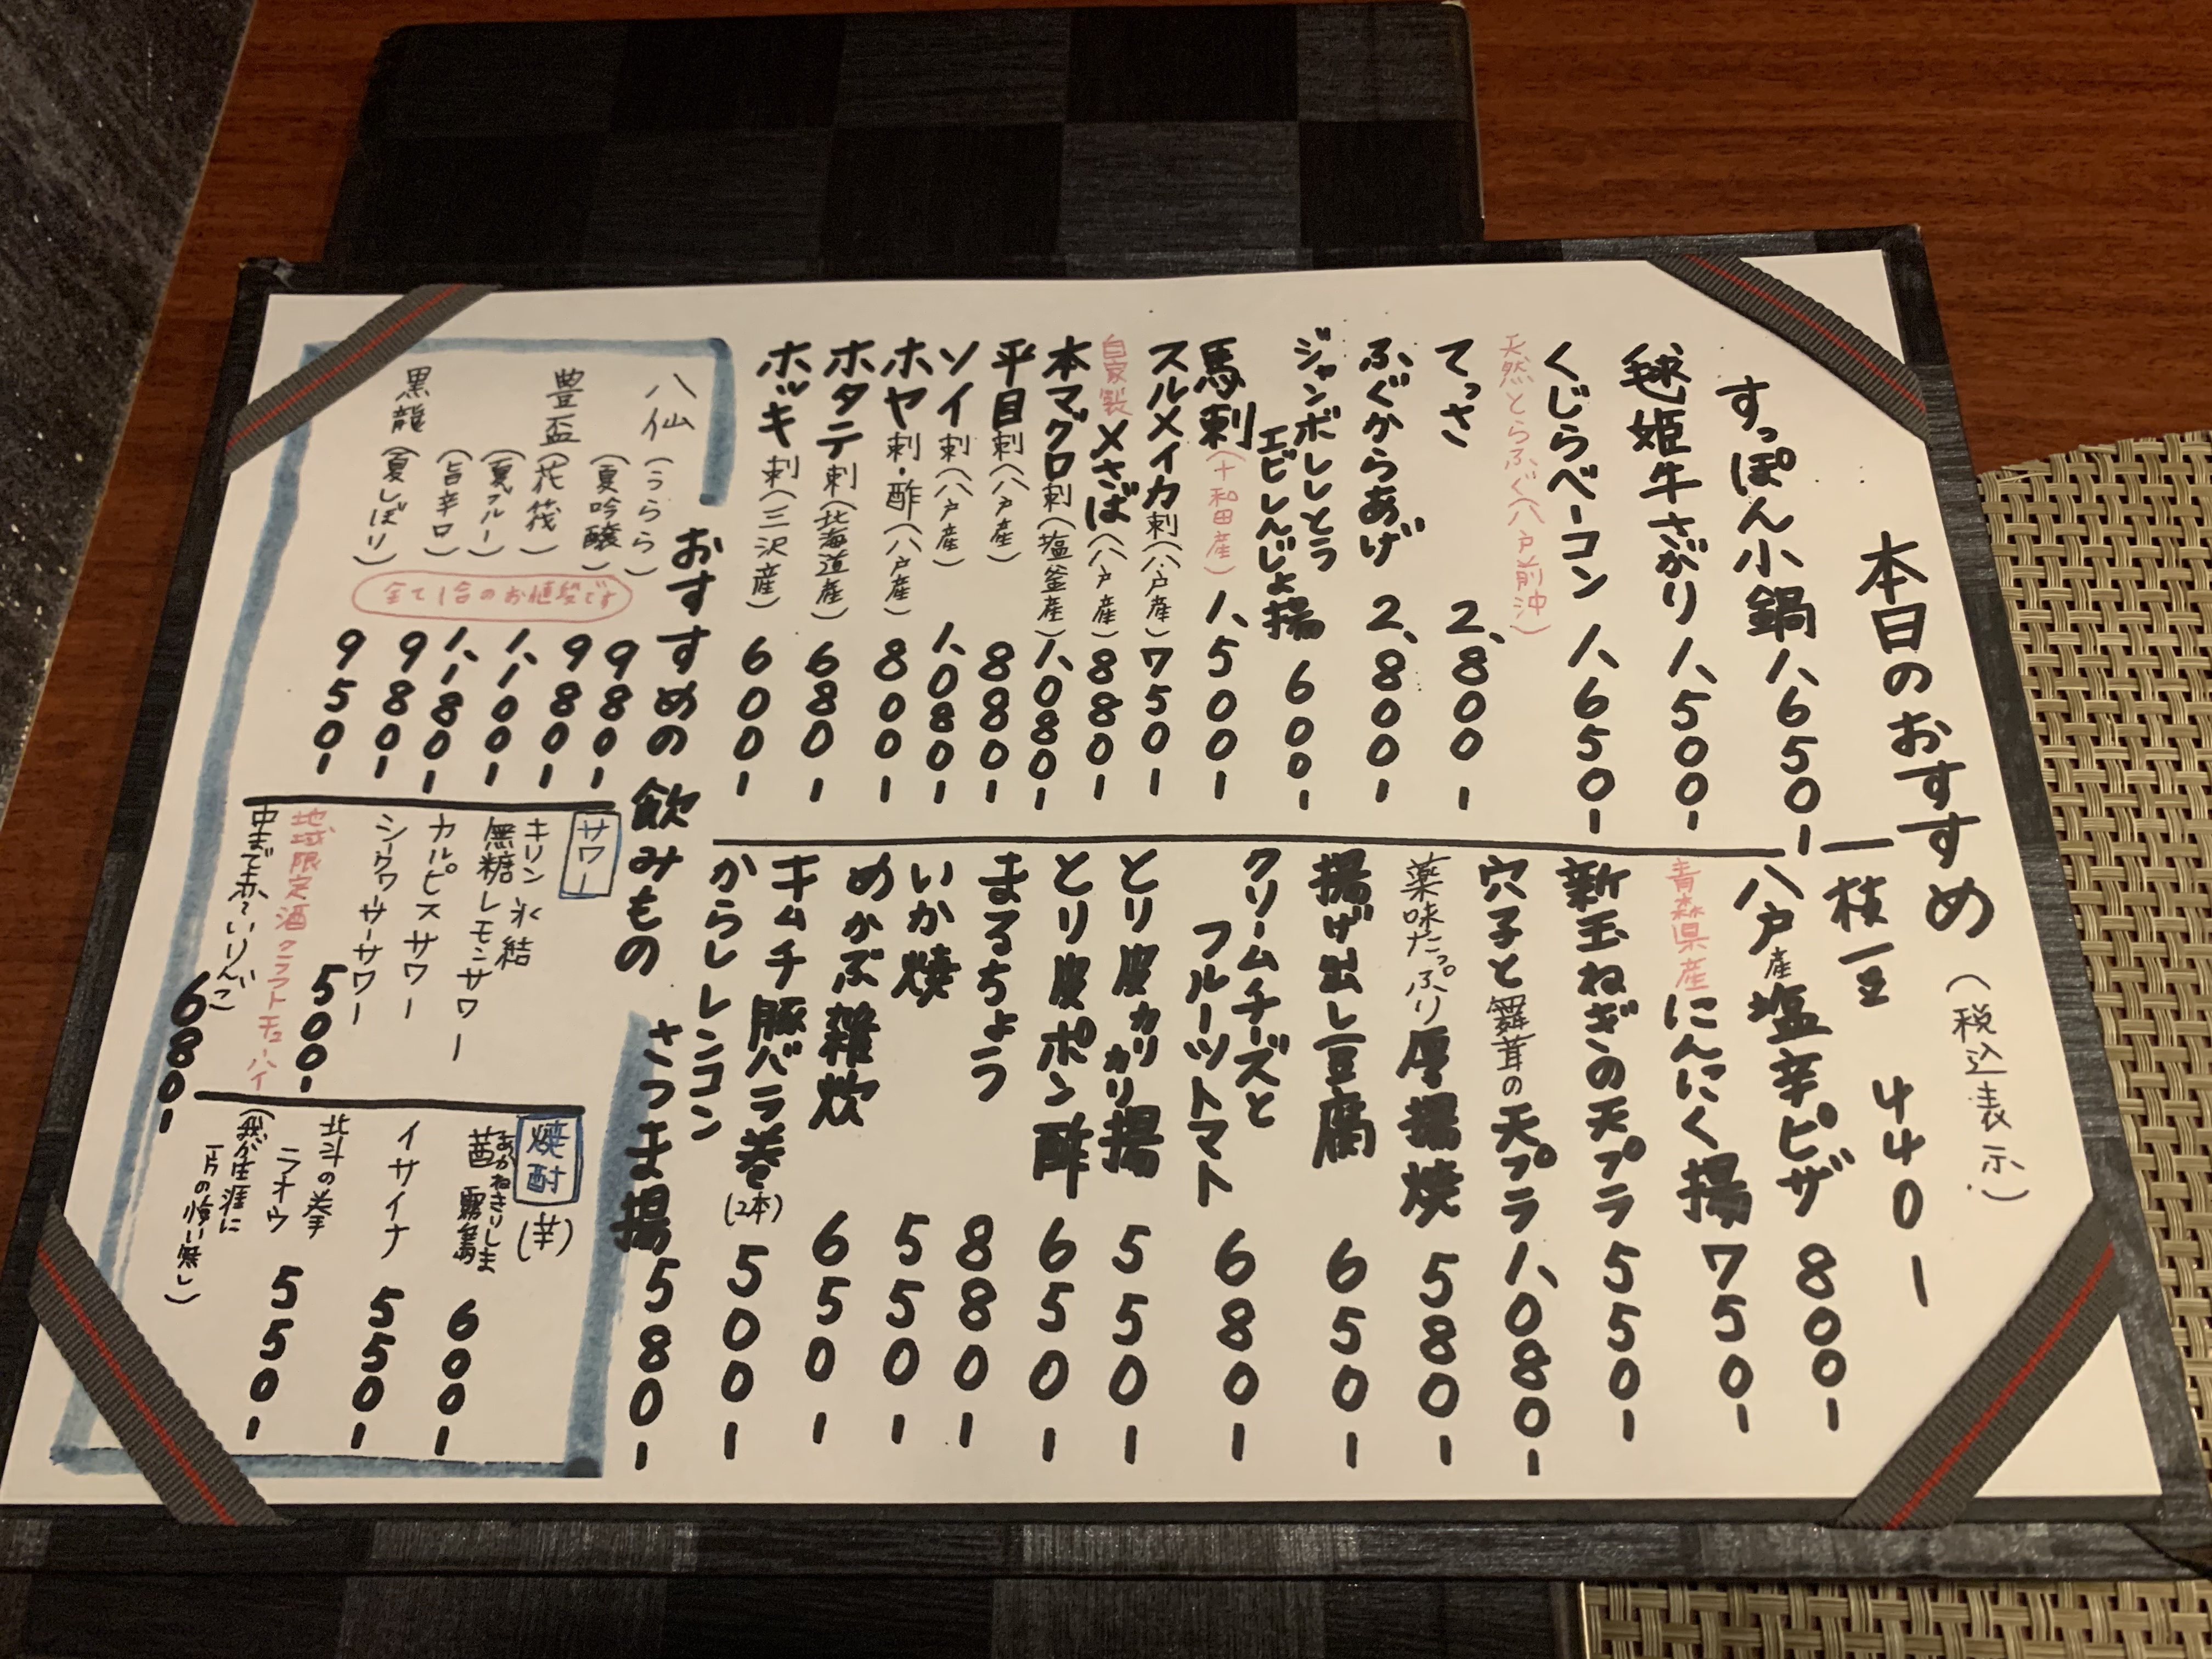 本日のおすすめ(税込表示)
すっぽん小鍋 1,650-
毬姫牛さがり 1,500-
くじらベーコン 1,650-
天然とらふぐ(八戸前沖)
てっさ 2,800-
ふぐからあげ 2,800-
ジャンボししとう
エビしんじょ揚 600-
馬刺(十和田産) 1,500-
スルメイカ刺(八戸産) 750-
自家製〆さば(八戸産) 880-
本マグロ刺(塩釜産) 1,080-
平目刺(八戸産) 880-
ソイ刺(八戸産) 1,080-
ホヤ刺・酢(八戸産) 800-
ホタテ刺(北海道産) 680-
ホッキ刺(三沢産) 600-
枝豆 440-
八戸産塩辛ピザ 800-
青森県産にんにく揚 750-
新玉ねぎの天プラ 550-
穴子と舞茸の天プラ 1,080-
薬味たっぷり厚揚焼 580-
揚げ出し豆腐 650-
クリームチーズと
フルーツトマト 680-
とり皮カリカリ揚 550-
とり皮ポン酢 650-
まるちょう 880-
いか焼 550-
めかぶ雑炊 650-
キムチ豚バラ巻(2本) 500-
からしレンコン
さつま揚 580-
おすすめの飲みもの
八仙(うらら) 980-
(夏吟醸) 980-
豊盃(花筏) 1,100-
(夏ブルー) 1,180-
(旨辛口) 980-
黒龍(夏しぼり) 950-
全て1合のお値段です
サワー
キリン氷結
無糖レモンサワー
カルピスサワー
シークヮーサーサワー
500-
地域限定酒クラフトチューハイ
中まで赤〜いりんご 680-
焼酎(芋)
あかねきりしま
茜霧島 600-
イサイナ 550-
北斗の拳
ラオウ 550-
(我が生涯に
一片の悔い無し)